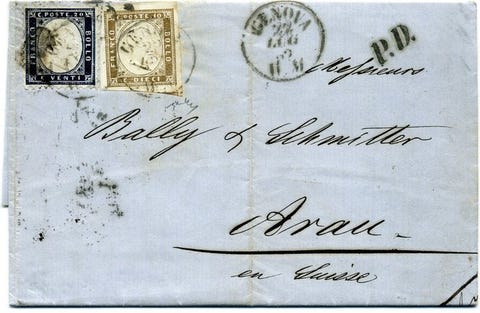 C. POSTE 20
FRANCO
BOLLO
C. VENTI
C. POSTE 10
FRANCO
BOLLO
C. DIECI
GENOVA
LUG
P.D.
Messieurs
Bally & Schmitter
Arau
en Suisse